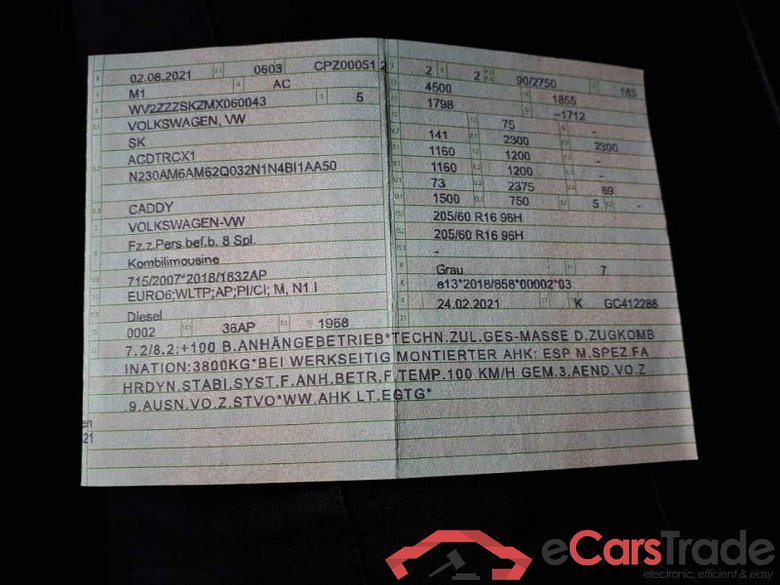 02.06.2021 0603 CPZ00051 2
M1 AC
WV2ZZZSKZMX060043 5
VOLKSWAGEN, VW
SK
ACDTRCX1
N230AM6AM62Q032N1N4BI1AA50
CADDY
VOLKSWAGEN-VW
Fz.z.Pers.bef.b. 8 Spl.
Kombilimousine
715/2007*2018/1832AP
EURO6;WLTP;AP;PI/CI; M, N1 I
Diesel
0002 36AP 1968
2 2 90/2750 185
4500 1855
1798 -1712
141 75 -
1160 2300 2300
1160 1200 -
73 1200 -
1500 2375 69
750 5 -
205/60 R16 96H
205/60 R16 96H
-
Grau 7
e13*2018/858*00002*03
24.02.2021 K GC412288
7.2/8.2:+100 B.ANHÄNGEBETRIEB*TECHN.ZUL.GES-MASSE D.ZUGKOMB
INATION:3800KG*BEI WERKSEITIG MONTIERTER AHK: ESP M.SPEZ.FA
HRDYN.STABI.SYST.F.ANH.BETR.F.TEMP.100 KM/H GEM.3.AEND.VO.Z
.9.AUSN.VO.Z.STVO*WW.AHK LT.EGTG*
en
21
eCarsTrade
electronic, efficient & easy